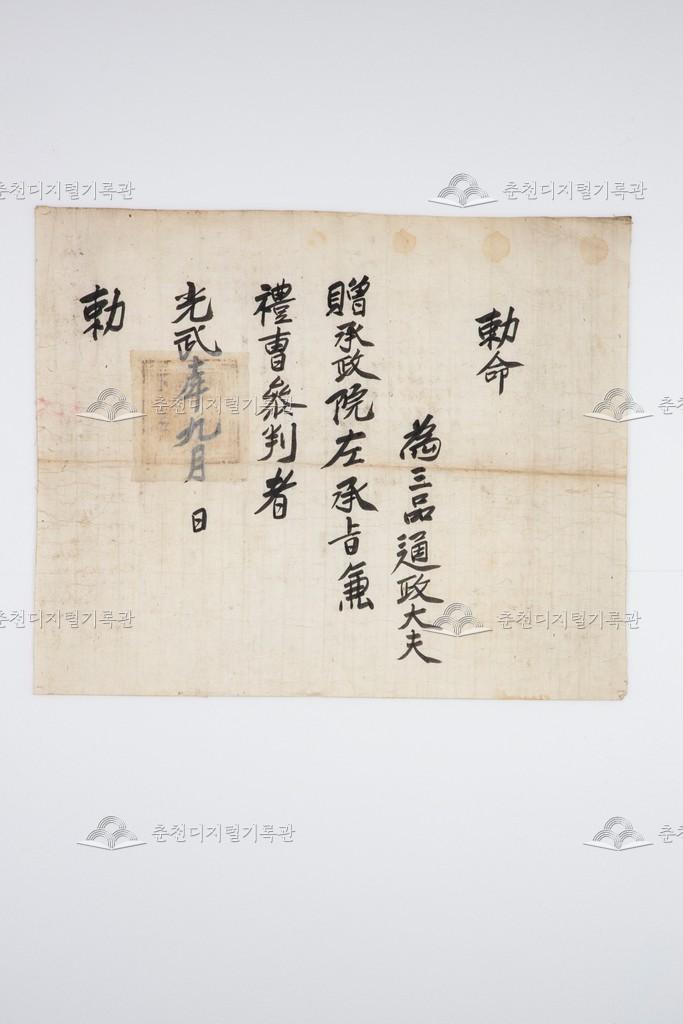 勅命
為三品通政大夫
贈承政院左承旨兼
禮曺叅判者
光武 九月 日
勅
춘천디지털기록관
춘천디지털기록관
춘천디지털기록관
춘천
춘천디지털기록관
춘천디지털기록관
춘천디지털기록관
춘천